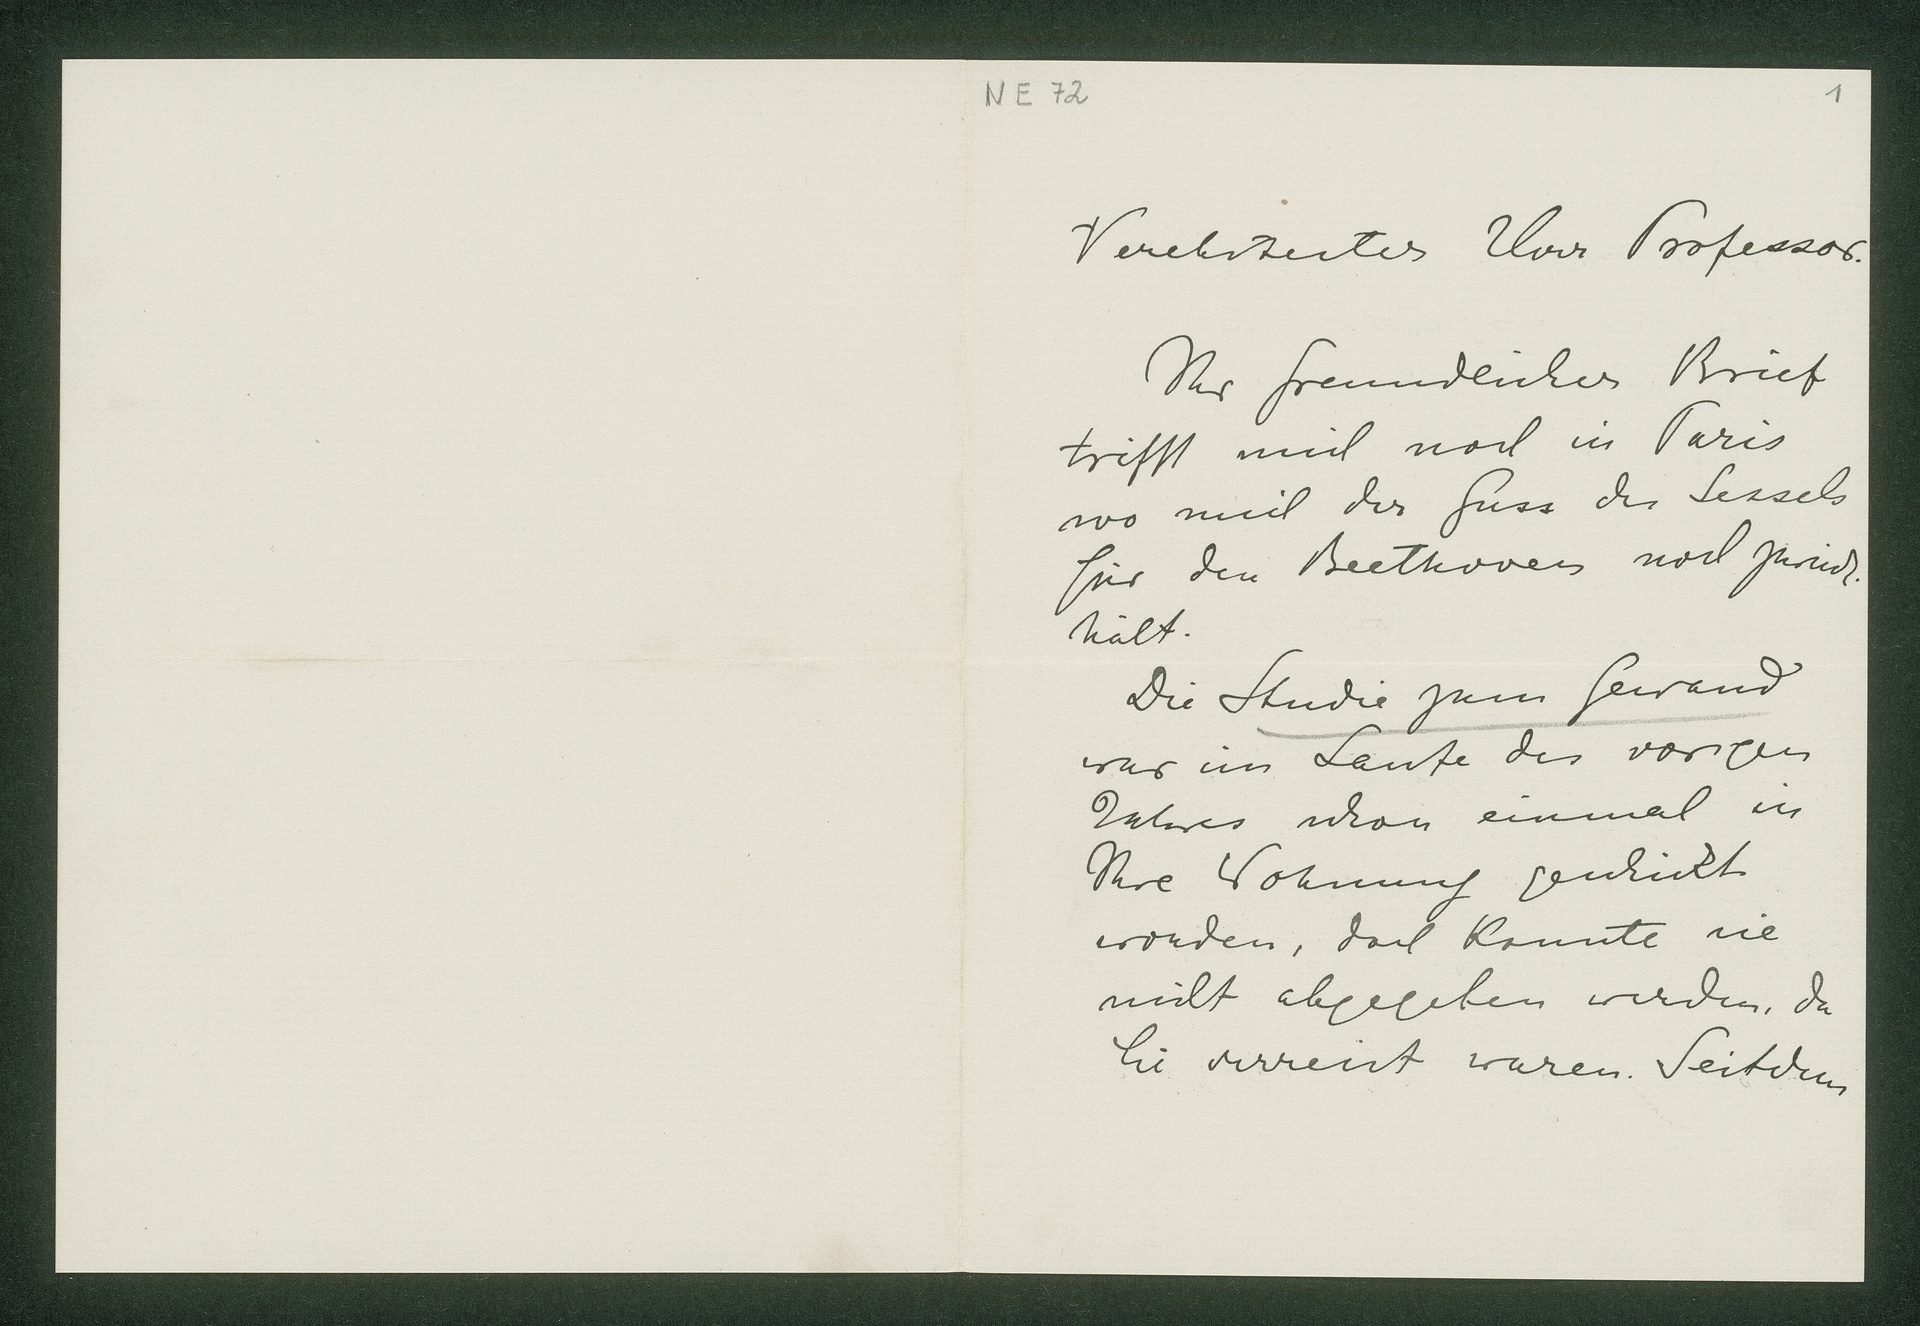 NE 72
1
Verehrtester Herr Professor.
Ihr freundlicher Brief
trifft mich noch in Paris
wo mich der Guss des Sessels
für den Beethoven noch zurück-
hält.
Die Studie zum Gewand
war im Laufe des vorigen
Jahres schon einmal in
Ihre Wohnung geschickt
worden, doch konnte sie
nicht abgegeben werden, da
Sie verreist waren. Seitdem